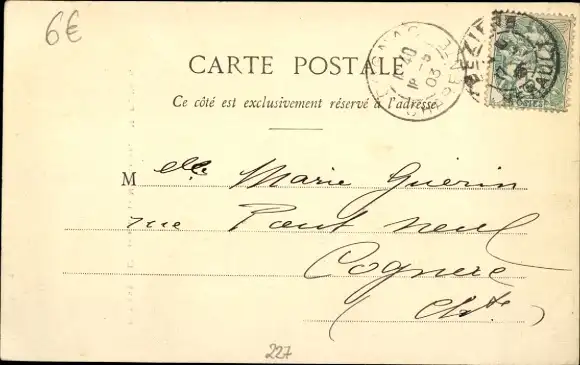 6€
CARTE POSTALE
Ce côté est exclusivement réservé à l'adresse
Melle Marie Guérin
rue Pont neuf
Cognac
(Chte)
227